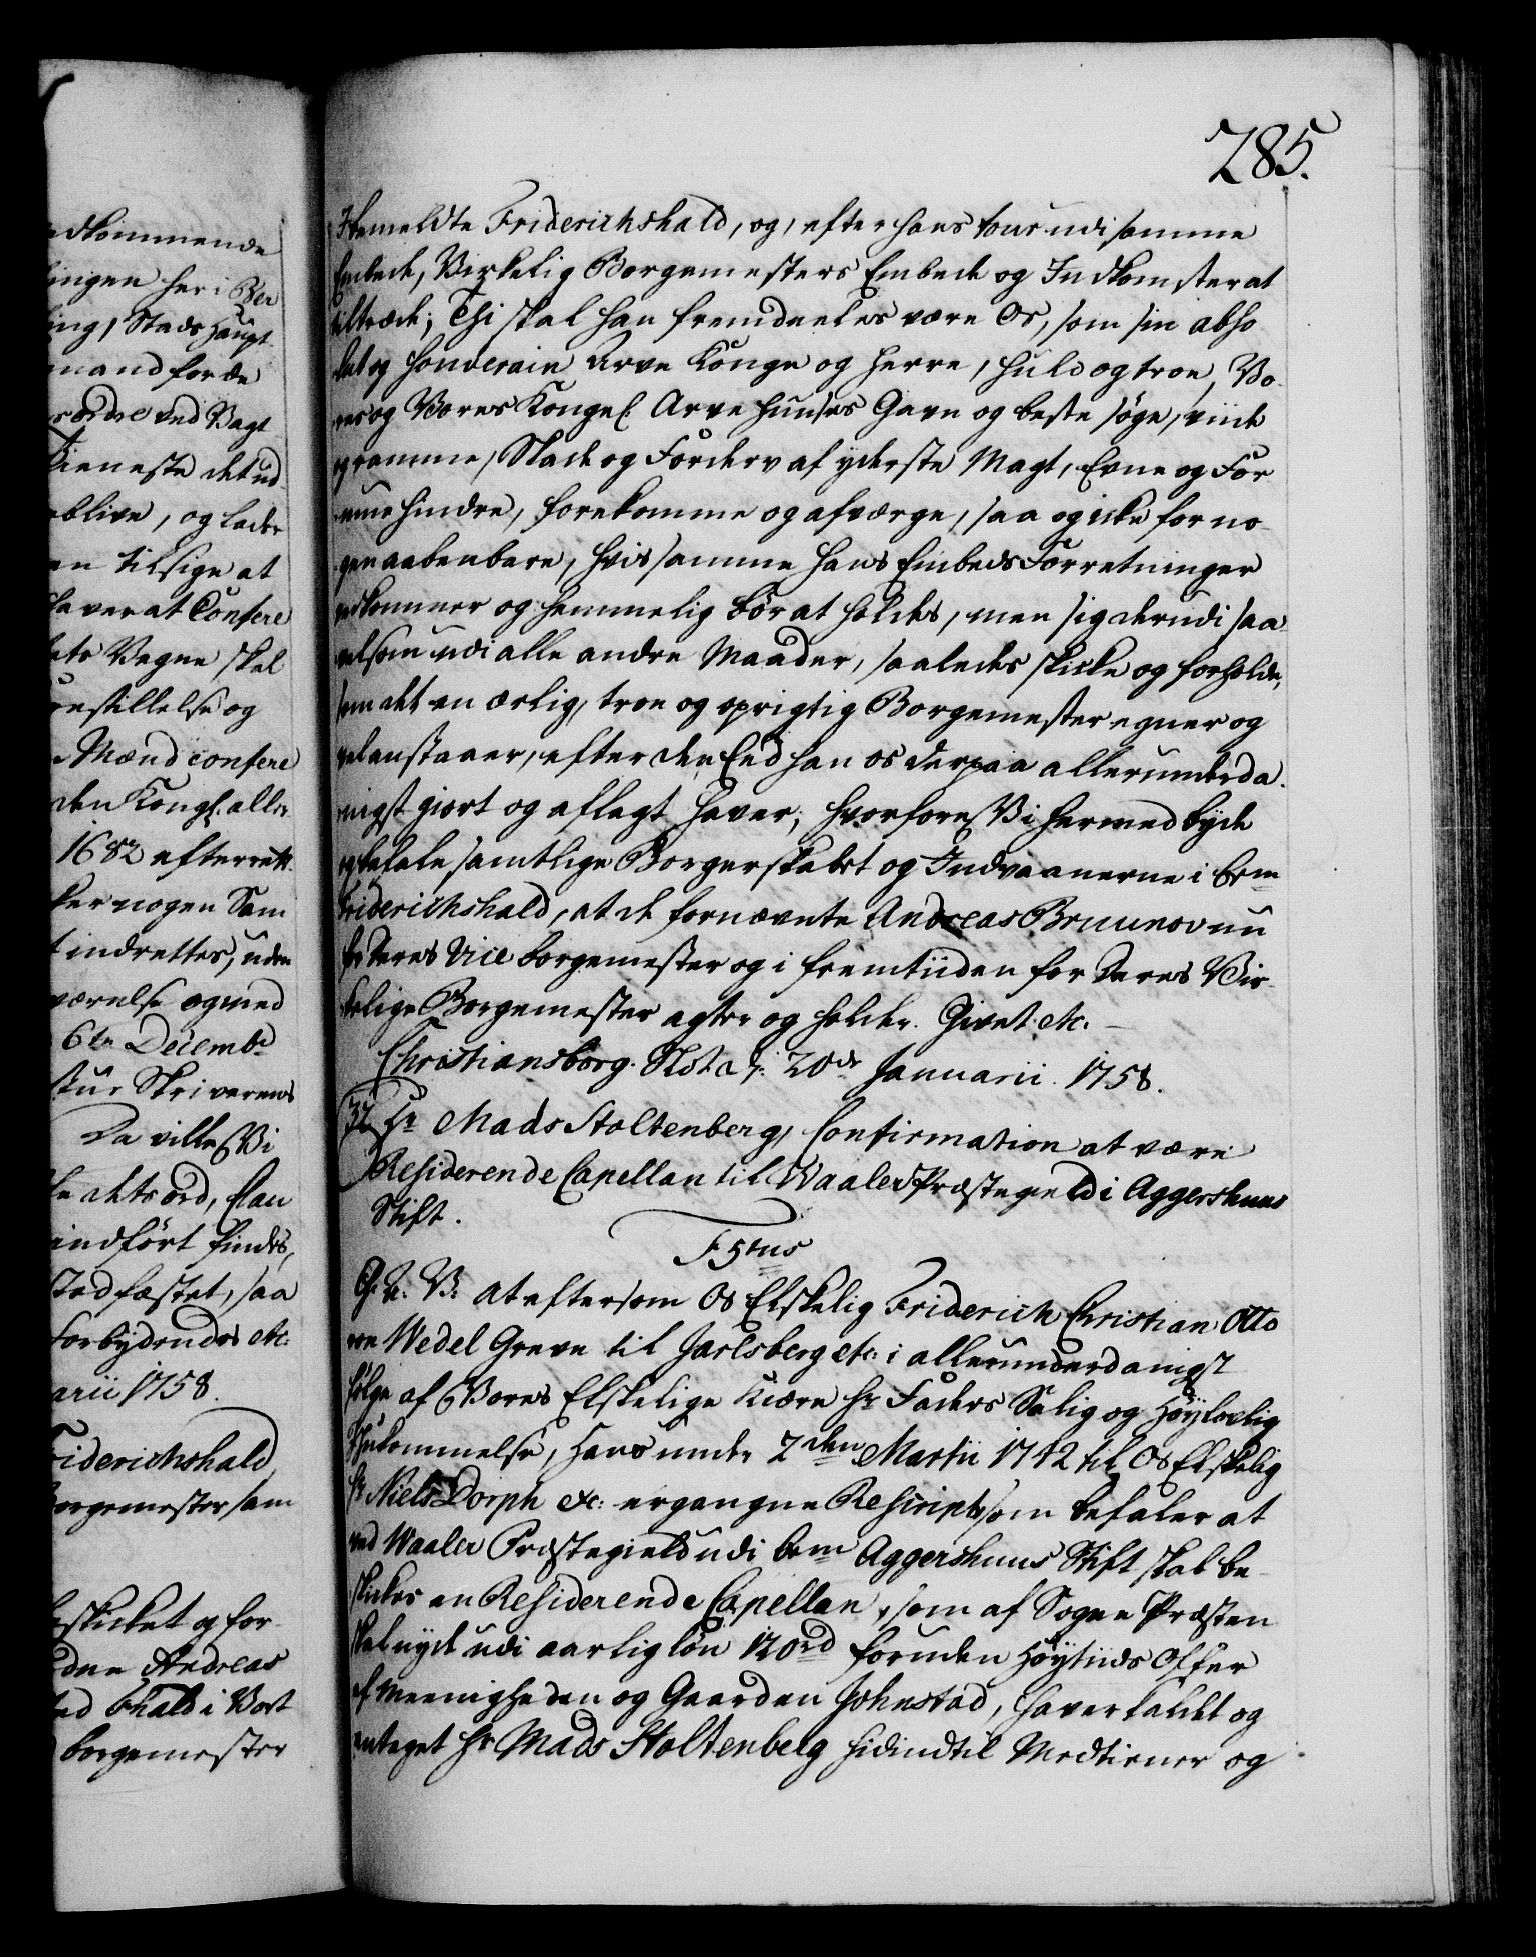 edkommende
ingen her i Ber
ing, Stads Haupt
mand for de
ordre ved Vagt
Tieneste det ud
blive, og lader
en tilsige at
haver at Confere
ets Vegne skal
restillelse og
Mænd confere
den Kongl. aller
1682 efterrett
ker nogen Sam
t indrettes, uden
værelse og med
6te Decembr
tur Skriverens
Da ville Vi
te dets ord, Clau
indført findes,
Stadfæstet, saa
Forbydendes etc.
arii 1758.
Friderichshald
Borgemester sam
eskicket og for
den Andreas
ved Fhald i Vort
borgemester
285.
Itemeldte Friderichshald, og, efter hans tour udi samme
Embede, Virkelig Borgemesters Embede og Indkomster at
tiltræde; Thi skal han fremdeeles være Os, som sin abso
lut og Souverain Arve Konge og Herre, huld og troe, Vo-
res og Vores Kongel. Arve Huuses Gavn og beste søge, viide
og ramme, Skade og Forderv af yderste Magt, Evne og For
mue hindre, forekomme og afværge, saa og icke for no
gen aabenbare, hvis samme hans Embeds Forretninger
vedkommer og hemmelig bør at holdes, men sig derudi saa-
velsom udi alle andre Maader, saaledes skicke og forholde,
som det en ærlig, troe og oprigtig Borgemester egner og
vel anstaaer, efter den Eed han os derpaa allerunderda-
nigst giort og aflagt haver; hvorfore Vi hermed byde
og befale samtlige Borgerskabet og Indvaanerne i bem
Friderichshald, at de fornævnte Andreas Bruunov nu
for Deres Vice borgemester og i fremtiiden for Deres Vir-
kelige Borgemester agter og holder. Givet etc.
Christiansborg Slot d: 20de Januarii 1758.
32 Hr Mads Stoltenberg, Confirmation at være
Residerende Capellan til Waaler Præstegield i Aggershuus
Stift.
F 5tus
G. A. V. at eftersom Os Elskelig Friderich Christian Otto
von Wedel Greve til Jarlsberg etc: i allerunderdanigst
følge af Vores Elskelige Kiære Hr Faders Salig og Høylovlig
Ihukommelse, Hans under 2den Martii 1742 til Os Elskelig
Hr Niels Dorph etc: ergangne Rescript, som befaler at
ved Waaler Præstegield udi bem Aggershuus Stift skal be-
skikkes en Residerende Capellan, som af Sogne Præsten
skal nyde udi aarlig løn 120 rd foruden Høytiids Offer
af Meenigheden og Gaarden Johnstad, haver kaldet og
antaget Hr Mads Stoltenberg hidindtil Medtiener og